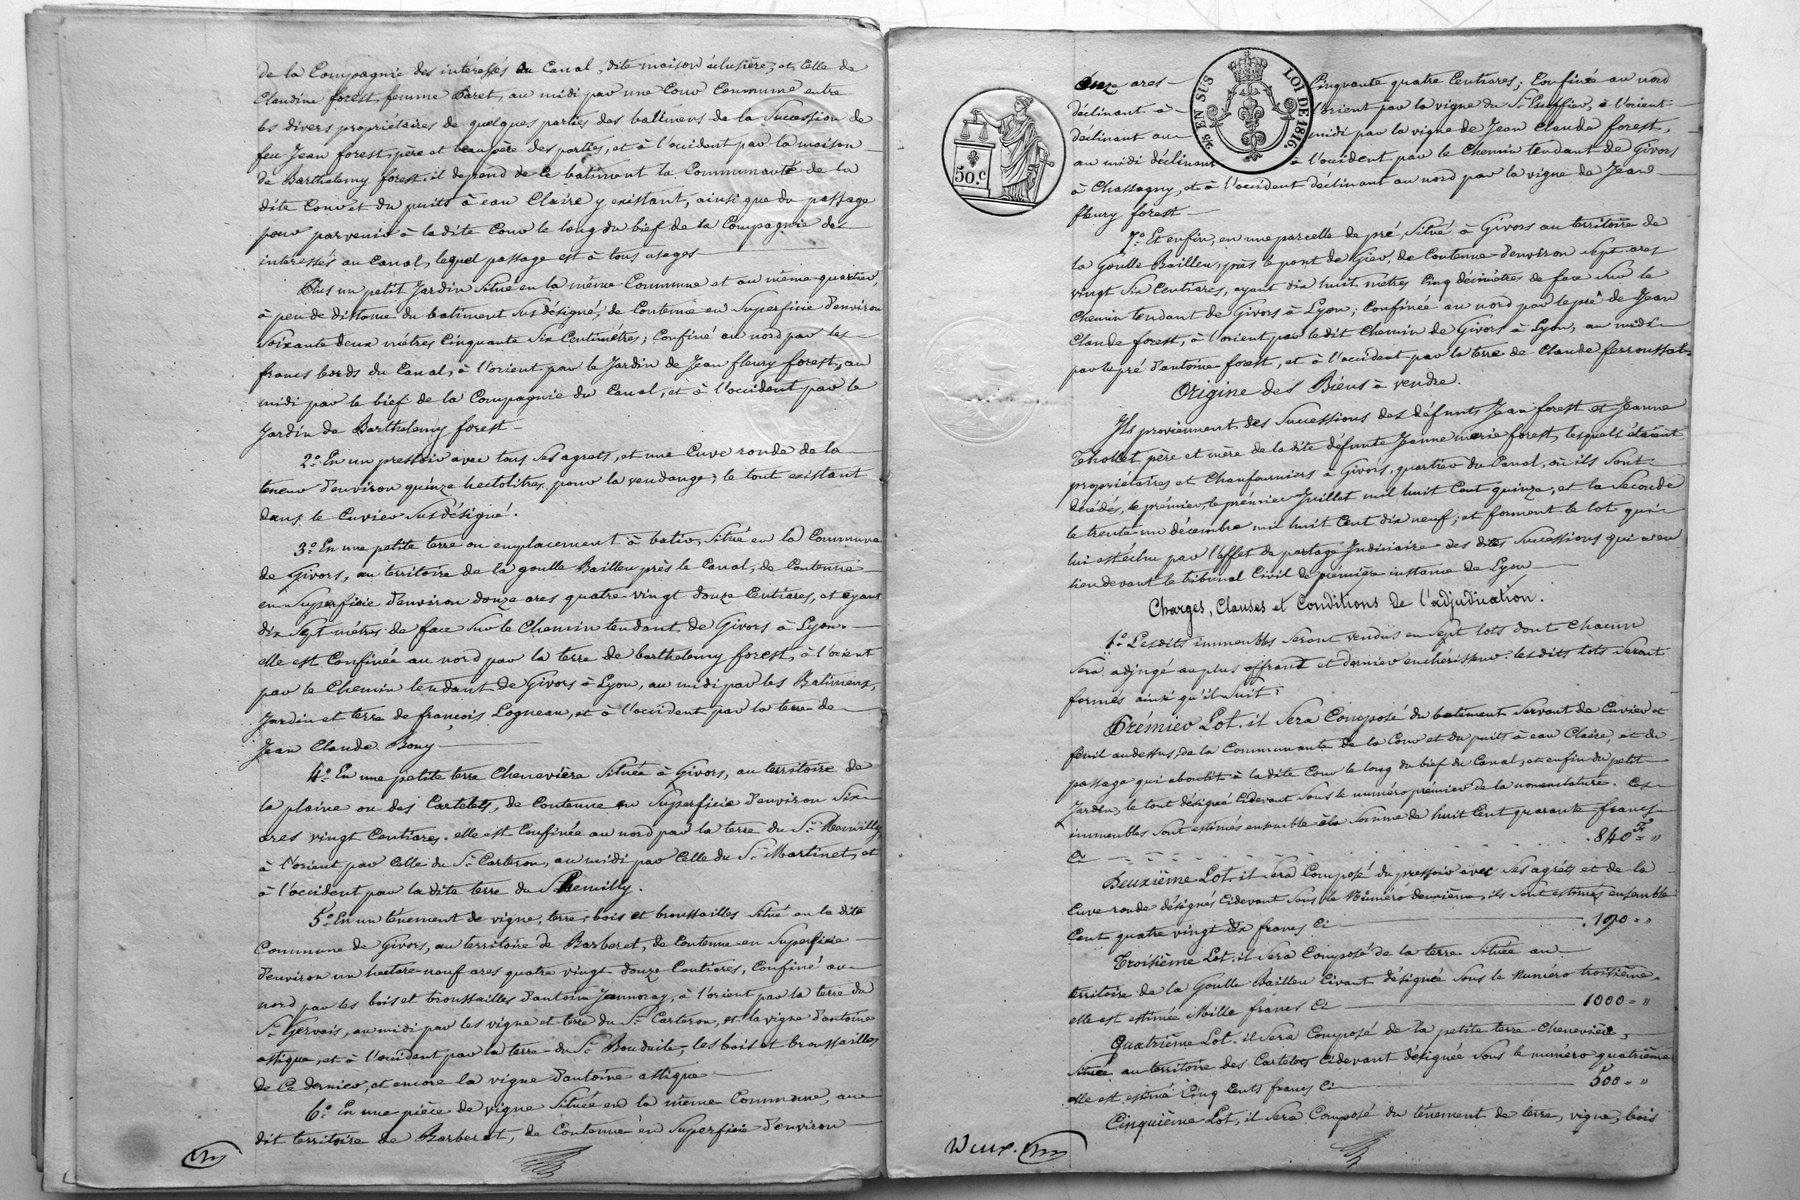 de la Compagnie des intéressés au Canal, dite maison éclusière, et celle de
Claudine forest, femme Baret, au midi par une Cour Commune entre
les divers propriétaires de quelques parties des batimens de la Succession de
feu Jean forest, père et beau père des parties, et à l'occident par la maison
de Barthelemy forest. il depend de ce batiment la Communauté de la
dite Cour et du puits à eau Claire y existant, ainsi que du passage
pour parvenir à la dite Cour le long du bief de la Compagnie des
intéressés au Canal, lequel passage est à tous usages
Plus un petit Jardin Situé en la même Commune et au même quartier,
à peu de distance du batiment Susdésigné, de Contenue en Superficie d'environ
Soixante deux métres Cinquante Six Centimétres, Confiné au nord par les
francs bords du Canal, à l'orient par le Jardin de Jean fleury forest, au
midi par le bief de la Compagnie du Canal, et à l'occident par le
Jardin de Barthelemy forest
2.° En un pressoir avec tous Ses agrets, et une Cuve ronde de la
teneur d'environ quinze hectolitres, pour la vendange; le tout existant
dans le Cuvier Susdésigné.
3.° En une petite terre ou emplacement à batir, Située en la Commune
de Givors, au territoire de la goutte Bailleu près le Canal, de Contenue
en Superficie d'environ douze ares quatre-vingt douze Centiares, et ayant
dix Sept métres de face Sur le Chemin tendant de Givors à Lyon.
elle est Confinée au nord par la terre de barthelemy forest, à l'orient
par le Chemin tendant de Givors à Lyon, au midi par les Batimens,
Jardin et terre de françois Logneau, et à l'occident par la terre de
Jean Claude Bony
4.° En une petite terre Chenevière Située à Givors, au territoire de
la plaine ou des Cartelets, de Contenue en Superficie d'environ Six
ares vingt Centiares. elle est Confinée au nord par la terre du S.r Remilly,
à l'orient par Celle du S.r Carteron, au midi par Celle du S.r Martinet, et
à l'occident par la dite terre du S. Remilly.
5.° En un tènement de vigne, terre, bois et broussailles Situé en la dite
Commune de Givors, au territoire de Barberet, de Contenue en Superficie
d'environ un hectare neuf ares quatre vingt douze Centiares, Confiné au
nord par les bois et broussailles d'antoine Jannoray, à l'orient par la terre du
S.r Gervais, au midi par les vigne et terre du S.r Carteron, et la vigne d'antoine
attique, et à l'occident par la terre du S.r Bouduile, les bois et broussailles
de Ce dernier, et encore la vigne d'antoine attique
6.° En une pièce de vigne Située en la même Commune, au
dit territoire de Barberet, de Contenue en Superficie d'environ
50.C
EN SUS
LOI DE 1816.
onze ares Cinquante quatre Centiares; Confinée au nord
déclinant à l'orient par la vigne du S.r à l'orient
déclinant au midi par la vigne de Jean Claude forest,
au midi déclinant à l'occident par le Chemin tendant de Givors
à Chassagny, et à l'occident déclinant au nord par la vigne de Jean
fleury forest
7.° Et enfin, en une parcelle de pré Situé à Givors au territoire de
la Goutte Bailleu, près le pont de Gier, de Contenue d'environ Sept ares
vingt Six Centiares, ayant dix huit métres Cinq décimètres de face Sur le
Chemin tendant de Givors à Lyon; Confinée au nord par le pré de Jean
Claude forest, à l'orient par le dit Chemin de Givors à Lyon, au midi
par le pré d'antoine forest, et à l'occident par la terre de Claude ferroussat
Origine des Biens à vendre.
Ils proviennent des Successions des défunts Jean forest et Jeanne
Thollet père et mère de la dite défunte Jeanne marie forest, lesquels étaient
propriétaires et Chanfourniers à Givors, quartier du Canal, où ils Sont
décédés, le premier, le premier Juillet mil huit Cent quinze, et la Seconde
le trente un décembre mil huit Cent dix neuf; et forment le lot qui
lui est échu par l'effet du partage Judiciaire des dites Successions qui a eu
lieu devant le tribunal Civil de première instance de Lyon
Charges, Clauses et Conditions de l'adjudication.
1.° Lesdits immeubles Seront vendus en Sept lots dont Chacun
Sera adjugé au plus offrant et dernier enchérisseur. les dits lots Seront
formés ainsi qu'il Suit:
Prémier Lot. il Sera Composé du batiment Servant de Cuvier et
fenil au dessus, de la Communauté de la Cour et du puits à eau Claire, et du
passage qui aboutit à la dite Cour le long du bief du Canal, et enfin du petit
Jardin, le tout désigné Cidevant Sous le numéro prémier de la nomenclature. Ces
immeubles Sont estimés ensemble à la Somme de huit Cent quarante francs
Ci 840 F.s "
Deuxième Lot. il Sera Composé du pressoir avec Ses agrèts et de la
Cuve ronde désignés Cidevant Sous le Numéro deuxième, ils Sont estimés ensemble
Cent quatre vingt dix francs Ci 190 = "
Troisième Lot, il Sera Composé de la terre Située au
territoire de la Goutte Bailleu Civant désignée Sous le Numéro troisième,
elle est estimée Mille francs Ci 1000 = "
Quatrième Lot. il Sera Composé de la petite terre Chenevière,
Située au territoire des Cartelets Cidevant désignée Sous le numéro quatrième
elle est estimé Cinq Cents francs Ci 500 = "
Cinquième Lot, il Sera Composé du tènement de terre, vigne, bois
Deux.